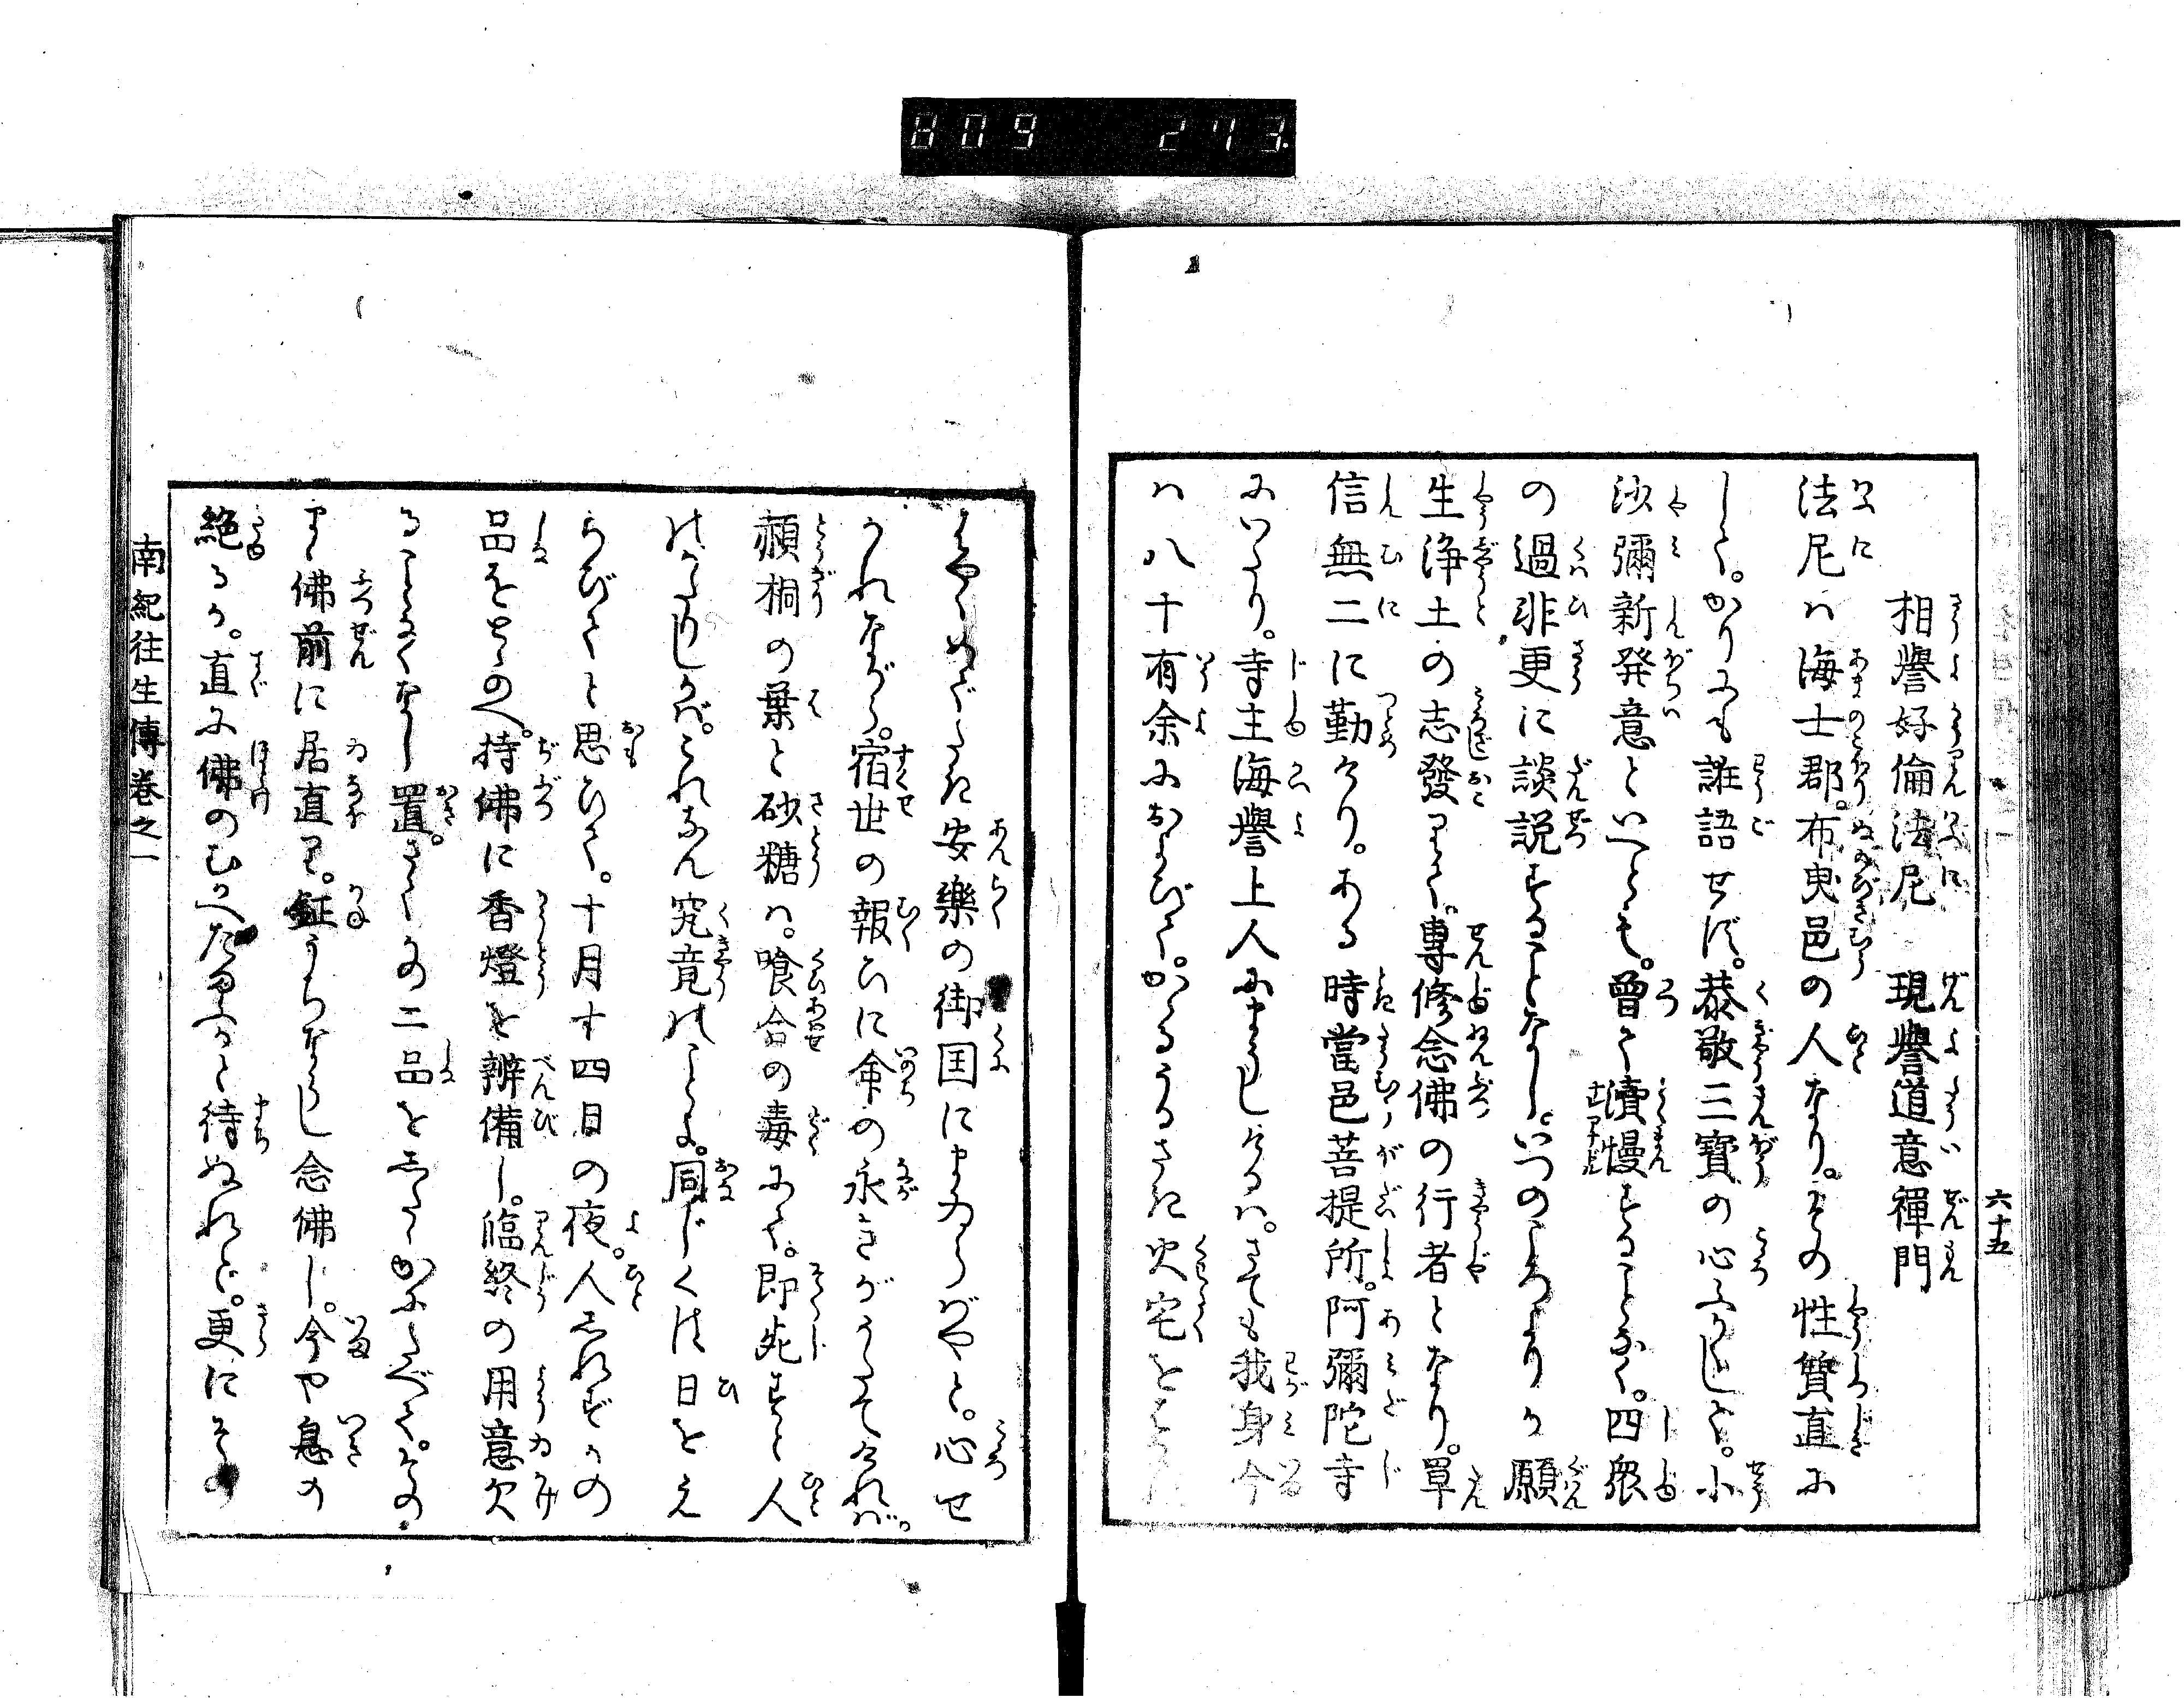 809 273
六十五
相譽好倫法尼 現譽道意禪門
法尼ハ海士郡。布曳邑の人なり。その性質直に
して。かりにも誑語せず。恭敬三寶の心ふかしと。小
沙彌新発意といへとも。曾て瀆慢することなく。四衆
の過非更に談説することなし。いつのころよりか願
生浄土の志發りて。專修念佛の行者となり。單
信無二に勤けり。ある時當邑菩提所。阿彌陀寺
にいたり。寺主海譽上人にまうしけるハ。さても我身今
ハ八十有余におよびて。かゝるうるさき火宅を
はやくめでたき安樂の御国にまゐらばやと。心せ
かれながら。宿世の報ひに命の永きがうたてければ。
頳桐の葉と砂糖ハ。喰合の毒にて。即死すと人
のかたりしかば。これなん究竟のことよ。同じくは日をえ
らびてと思ひて。十月十四日の夜。人しれずかの
品をとゝのへ。持佛に香燈を辨備し。臨終の用意欠
ることなくなし置。さてかの二品をしたゝかにたべて。その
まゝ佛前に居直り。鉦うちならし念佛し。今や息の
絶るか。直に佛のむかへたまふかと待ぬれど。更にその
南紀往生傳巻之一